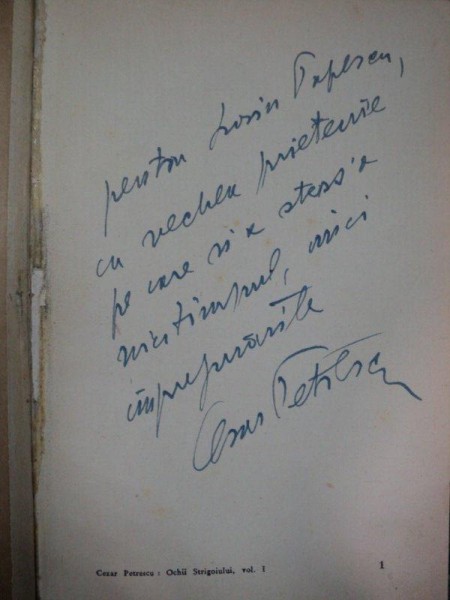 pentru Sorin Popescu,
cu vechea prietenie
pe care n'a sters'o
nici timpul, nici
împrejurările
Cezar Petrescu
Cezar Petrescu : Ochii Strigoiului, vol. I
1